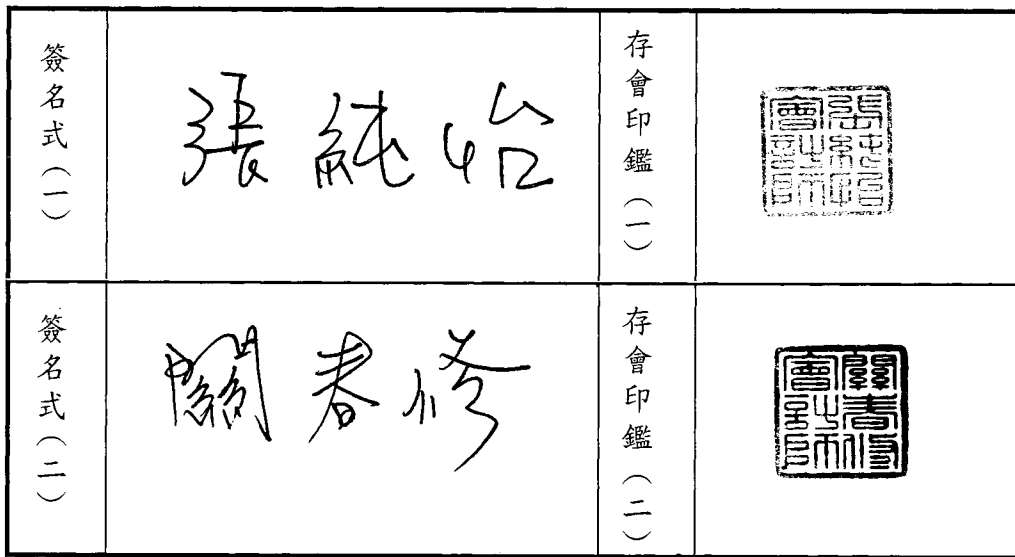 簽名式（一）
張純怡
存會印鑑（一）
張純怡
會計師
簽名式（二）
關春修
存會印鑑（二）
關春修
會計師